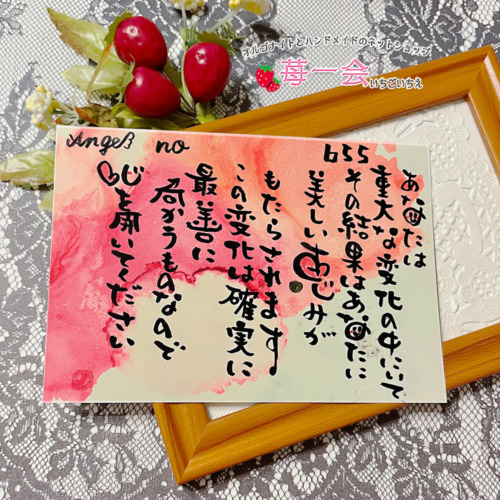 オルゴナイトとハンドメイドのネットショップ
苺一会
いちごいちえ
Angel no
655
あなたは
重大な変化の中にいて
その結果はあなたに
美しい恵みが
もたらされます。
この変化は確実に
最善に
向かうものなので
心を開いてください